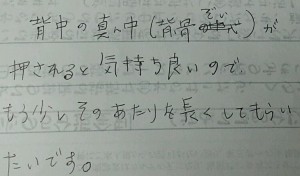 背中の真ん中(背骨ぞい)が
押されると気持ち良いので
もう少しそのあたりを長くしてもらい
たいです。